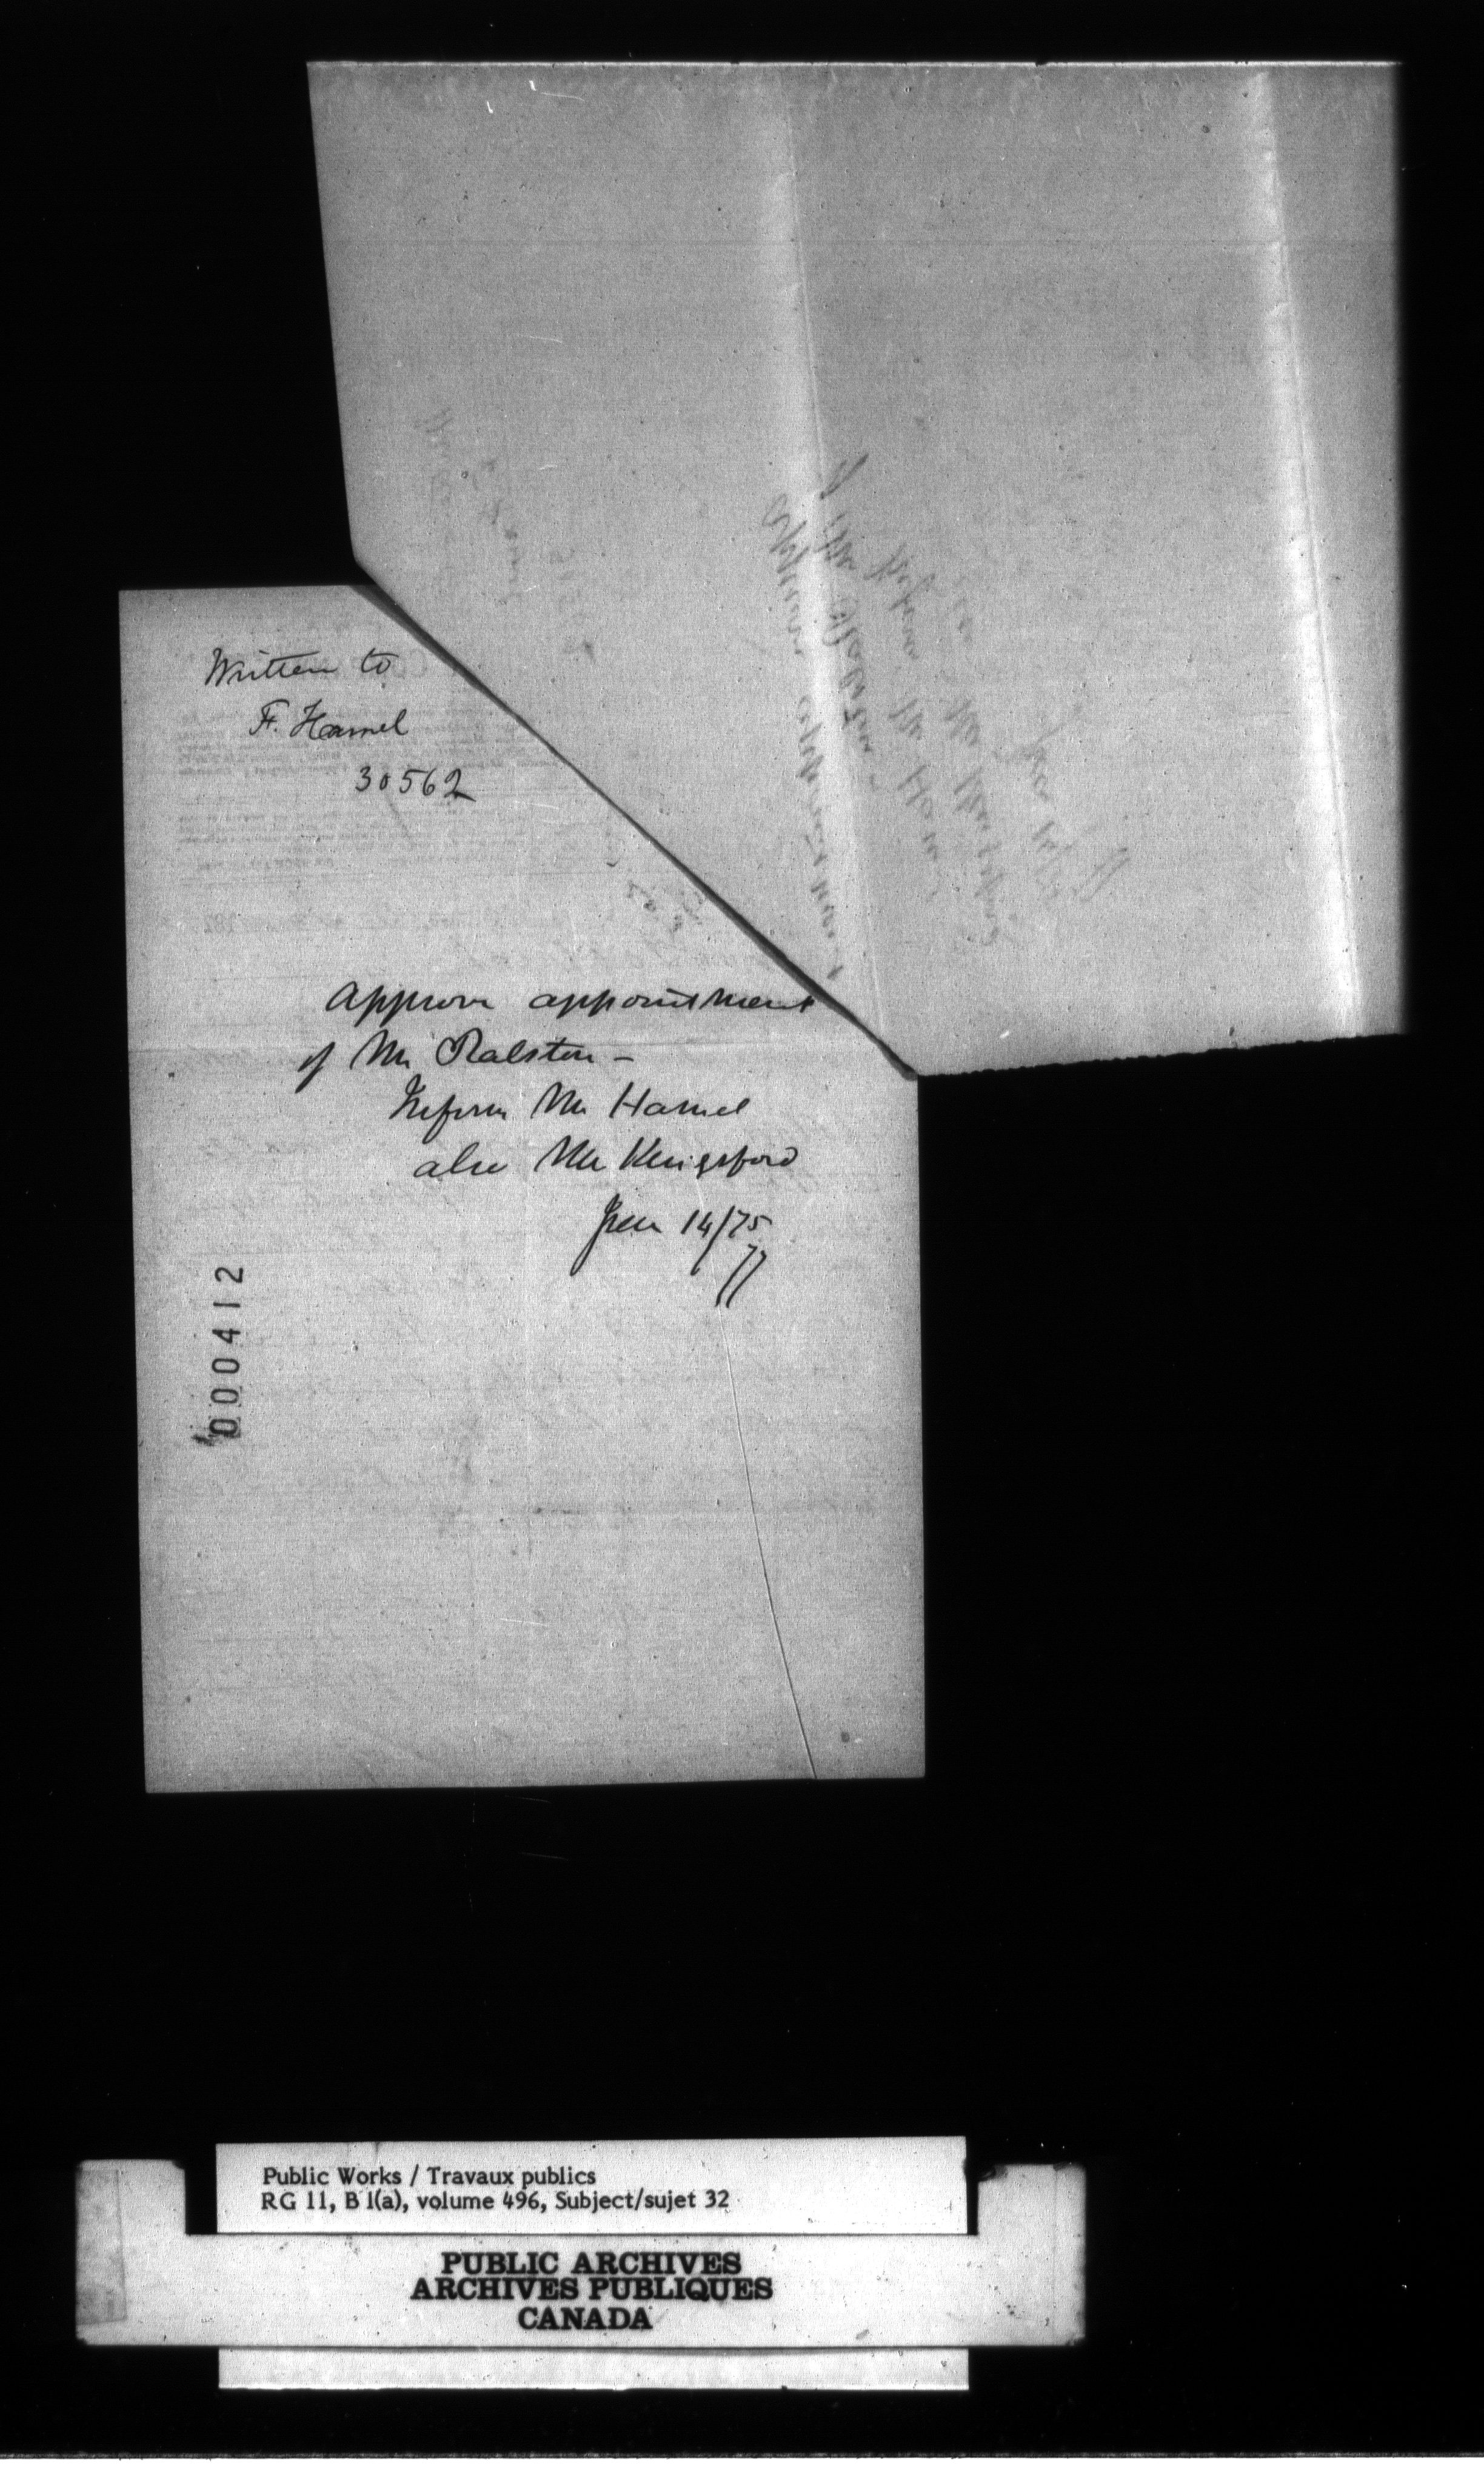 Written to
F. Hamel
30562
Approve appointment
of Mr Ralston -
Inform Mr Hamel
also Mr Kingsford
14/75
000412
Public Works / Travaux publics
RG 11, B 1(a), volume 496, Subject/sujet 32
PUBLIC ARCHIVES
ARCHIVES PUBLIQUES
CANADA